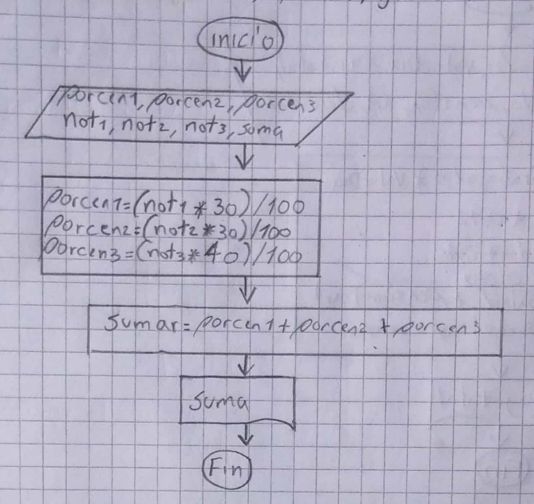 inicio
porcen1, porcen2, porcen3
not1, not2, not3, suma
porcen1=(not1*30)/100
porcen2=(not2*30)/100
porcen3=(not3*40)/100
sumar=porcen1+porcen2+porcen3
suma
Fin